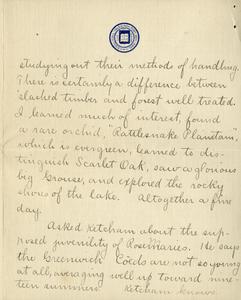 studying out their methods of handling.
There is certainly a difference between
slashed timber and forest well treated.
I learned much of interest, found
a rare orchid, "Rattlesnake Plantain",
which is evergreen, learned to dis-
tinguish Scarlet Oak, saw a glorious
big Grouse, and explored the rocky
shores of the lake. Altogether a fine
day.
Asked Ketcham about the sup-
posed juvenility of RoseMaries. He says
the Greenwich Coeds are not so young
at all, averaging well up toward nine-
teen summers. Ketcham knows.